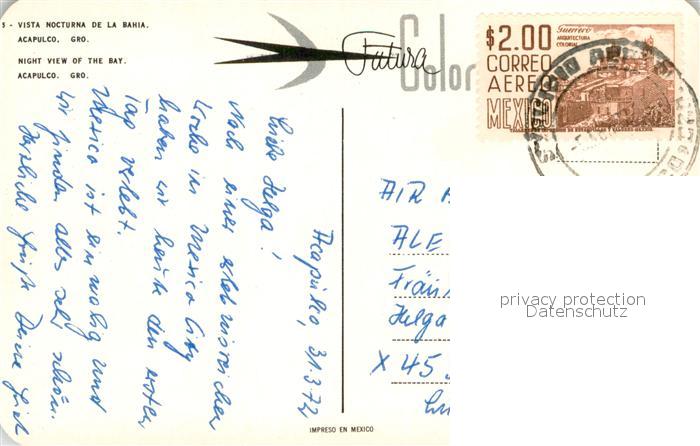 5 - VISTA NOCTURNA DE LA BAHIA.
ACAPULCO. GRO.
NIGHT VIEW OF THE BAY.
ACAPULCO. GRO.
Futura
Color
$2.00
Guerrero
ARQUITECTURA
COLONIAL
CORREO
AEREO
MEXICO
Acapulco, 31.3.72
Liebe Helga!
Nach einer erlebnisreichen
Woche in Mexico City
haben wir heute den ersten
Tag verlebt.
Mexico ist einmalig und
wir finden alles sehr schön.
Herzliche Grüße Deine
AIR
ALE
Fräu
Helga
X 45
IMPRESO EN MEXICO
privacy protection
Datenschutz